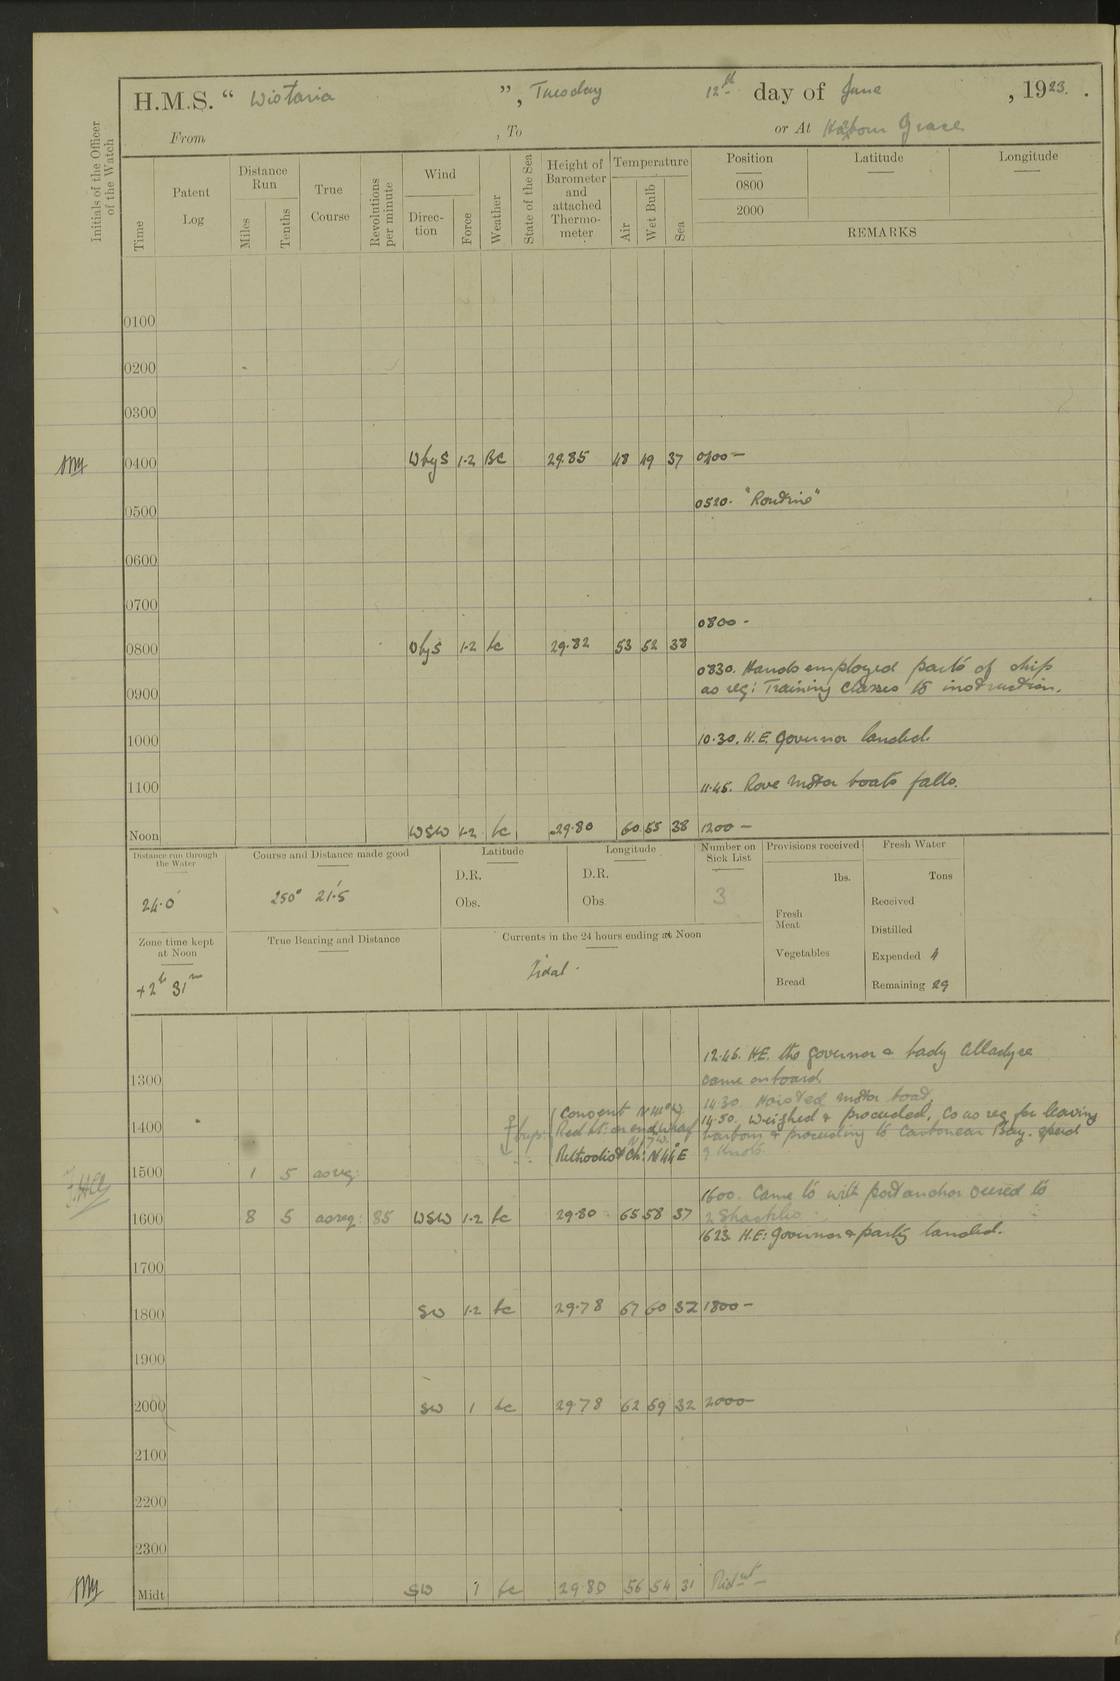 H.M.S. “ Wistaria ”, Tuesday 12th day of June , 1923.
From , To or At Harbour Grace
Initials of the Officer of the Watch
Time
Patent Log
Distance Run
Miles
Tenths
True Course
Revolutions per minute
Wind
Direction
Force
Weather
State of the Sea
Height of Barometer and attached Thermometer
Temperature
Air
Wet Bulb
Sea
Position Latitude Longitude
0800
2000
REMARKS
0100
0200
0300
0400 W by S 1-2 BC 29.85 48 49 37 0400 —
0520. "Routine"
0500
0600
0700
0800 -
0800 W by S 1-2 bc 29.82 53 52 38
0830. Hands employed parts of ship
as req: Training Classes to instruction.
0900
1000 10.30. H.E. Governor landed.
1100 11.45. Rove motor boats falls.
Noon WSW 1-2 bc 29.80 60 55 38 1200 —
Distance run through the Water
24.0
Course and Distance made good
250° 21.5
Latitude
D.R.
Obs.
Longitude
D.R.
Obs
Number on Sick List
3
Provisions received
lbs.
Fresh Meat
Vegetables
Bread
Fresh Water
Tons
Received
Distilled
Expended 4
Remaining 29
Zone time kept at Noon
+2h 31m
True Bearing and Distance
Currents in the 24 hours ending at Noon
Tidal.
12.45. H.E. the Governor & Lady Allardyce
came onboard
1300
14.30 Hoisted motor boat.
Convent N41°W
14.50. Weighed & proceeded, Co as req for leaving
1400
Red Lt: on end wharf
harbour & proceeding to Carbonear Bay. speed
9 Knots.
Methodist Ch: N44E
1500 1 5 as req:
1600. Came to with port anchor veered to
1600 8 5 as req: 85 WSW 1-2 bc 29.80 65 58 37 2 Shackles
1623. H.E: Governor & party landed.
1700
1800 SW 1-2 bc 29.78 67 60 32 1800 —
1900
2000 SW 1 bc 29.78 62 59 32 2000 —
2100
2200
2300
Midt SW 1 bc 29.80 56 54 31